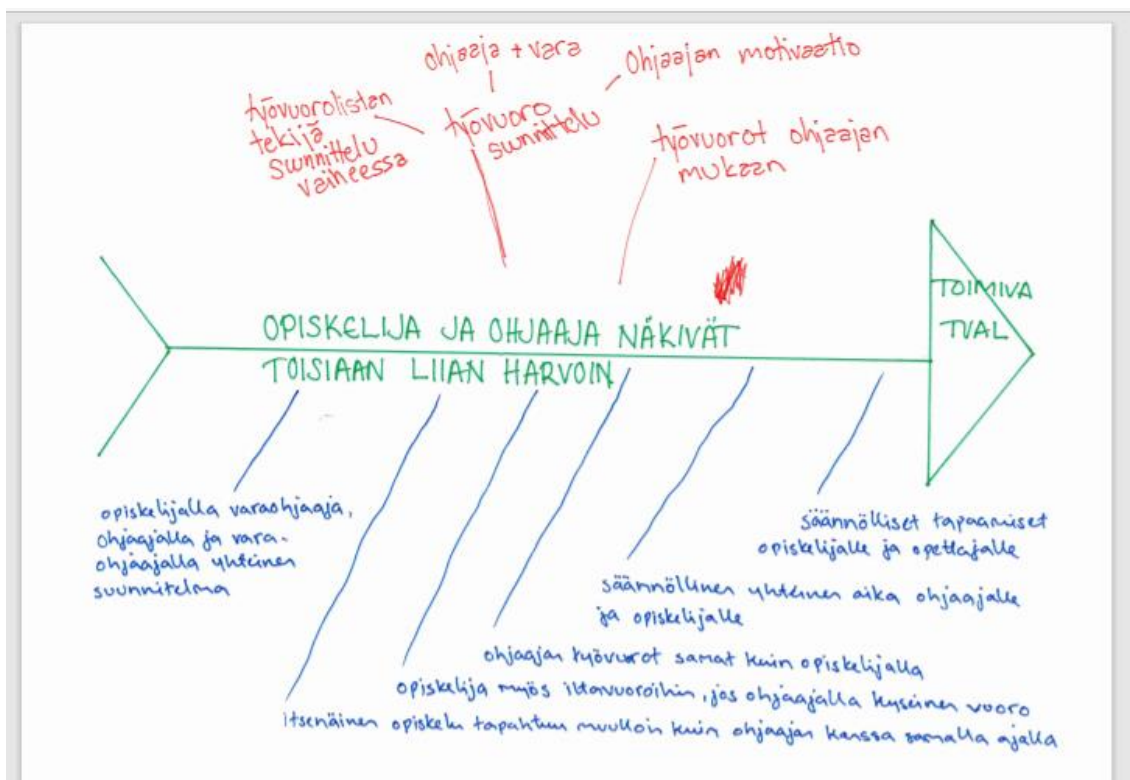 ohjaaja + vara
Ohjaajan motivaatio
työvuorolistan
tekijä
suunnittelu
vaiheessa
työvuoro
suunnittelu
työvuorot ohjaajan
mukaan
OPISKELIJA JA OHJAAJA NÄKIVÄT
TOISIAAN LIIAN HARVOIN
TOIMIVA
TVAL
opiskelijalla varaohjaaja,
ohjaajalla ja vara-
ohjaajalla yhteinen
suunnitelma
säännölliset tapaamiset
opiskelijalle ja opettajalle
säännöllinen yhteinen aika ohjaajalle
ja opiskelijalle
ohjaajan työvuorot samat kuin opiskelijalla
opiskelija myös iltavuoroihin, jos ohjaajalla kyseinen vuoro
itsenäinen opiskelu tapahtuu muulloin kuin ohjaajan kanssa samalla ajalla